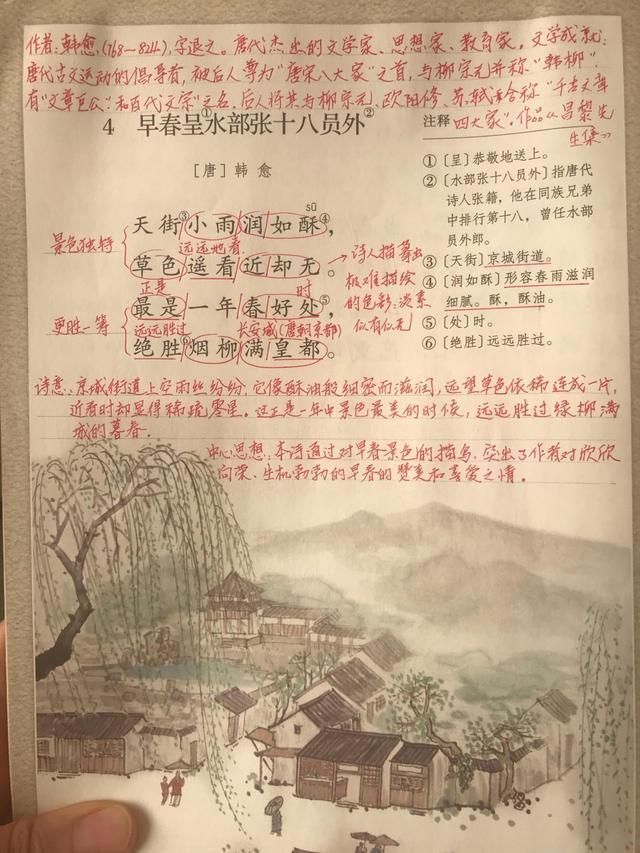 作者:韩愈,(768—824),字退之。唐代杰出的文学家、思想家、教育家。文学成就:
唐代古文运动的倡导者,被后人尊为“唐宋八大家”之首,与柳宗元并称“韩柳”,
有“文章巨公”和百代文宗”之名。后人将其与柳宗元、欧阳修、苏轼合称“千古文章
四大家”。作品《昌黎先
生集》
4 早春呈①水部张十八员外②
[唐] 韩愈
sū
天街③小雨润如酥④,
景色独特
远远地看
草色遥看近却无。
正是
时
最是一年春好处⑤,
更胜一筹
远远胜过
长安城(唐朝京都)
绝胜⑥烟柳满皇都。
→诗人描摹出
极难描绘
的色彩:淡素
似有似无
注释
①〔呈〕恭敬地送上。
②〔水部张十八员外〕指唐代
诗人张籍,他在同族兄弟
中排行第十八,曾任水部
员外郎。
③〔天街〕京城街道。
④〔润如酥〕形容春雨滋润
细腻。酥,酥油。
⑤〔处〕时。
⑥〔绝胜〕远远胜过。
诗意:京城街道上空雨丝纷纷,它像酥油般细密而滋润,远望草色依稀连成一片,
近看时却显得稀疏零星。这正是一年中景色最美的时候,远远胜过绿柳满
城的暮春.
中心思想:本诗通过对早春景色的描写,突出了作者对欣欣
向荣、生机勃勃的早春的赞美和喜爱之情。